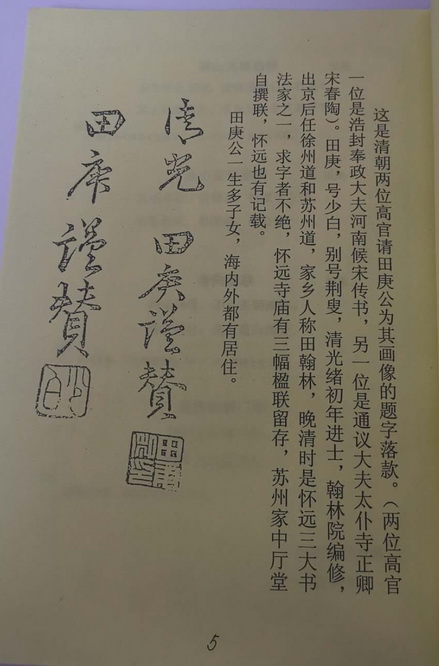 这是清朝两位高官请田庚公为其画像的题字落款。（两位高官
一位是浩封奉政大夫河南候宋传书，另一位是通议大夫太仆寺正卿
宋春陶）。田庚，号少白，别号荆叟，清光绪初年进士，翰林院编修，
出京后任徐州道和苏州道，家乡人称田翰林，晚清时是怀远三大书
法家之一，求字者不绝，怀远寺庙有三幅楹联留存，苏州家中厅堂
自撰联，怀远也有记载。
田庚公一生多子女，海内外都有居住。
田庚谨赞
田庚谨赞
少白
5